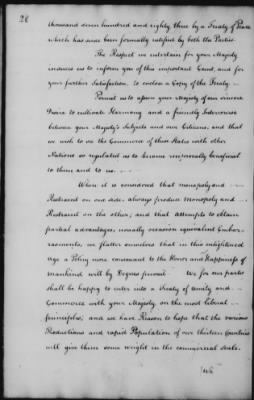 28
thousand seven hundred and eighty three by a Treaty of Peace
which has since been formally ratified by both the Parties.
The Respect we entertain for your Majesty
induces us to inform you of this important Event, and for
your further Satisfaction, to enclose a Copy of the Treaty —
Permit us to assure your Majesty of our sincere
Desire to cultivate Harmony and a friendly Intercourse
between your Majesty's Subjects and our Citizens, and that
we wish to see the Commerce of these States with other
Nations so regulated as to become reciprocally beneficial
to them and to us. —
When it is considered that monopoly and
Restraint on one side, always produce Monopoly and
Restraint on the other; and that attempts to obtain
partial advantages, usually occasion equivalent Embar-
rassments, we flatter ourselves that in this enlightened
Age a Policy more consonant to the Honor and Happiness of
mankind will by Degrees prevail. We for our parts
shall be happy to enter into a Treaty of Amity and
Commerce with your Majesty, on the most liberal
principles; and we have Reason to hope that the various
Productions and rapid Population of our thirteen Countries
will give them some weight in the commercial Scale.